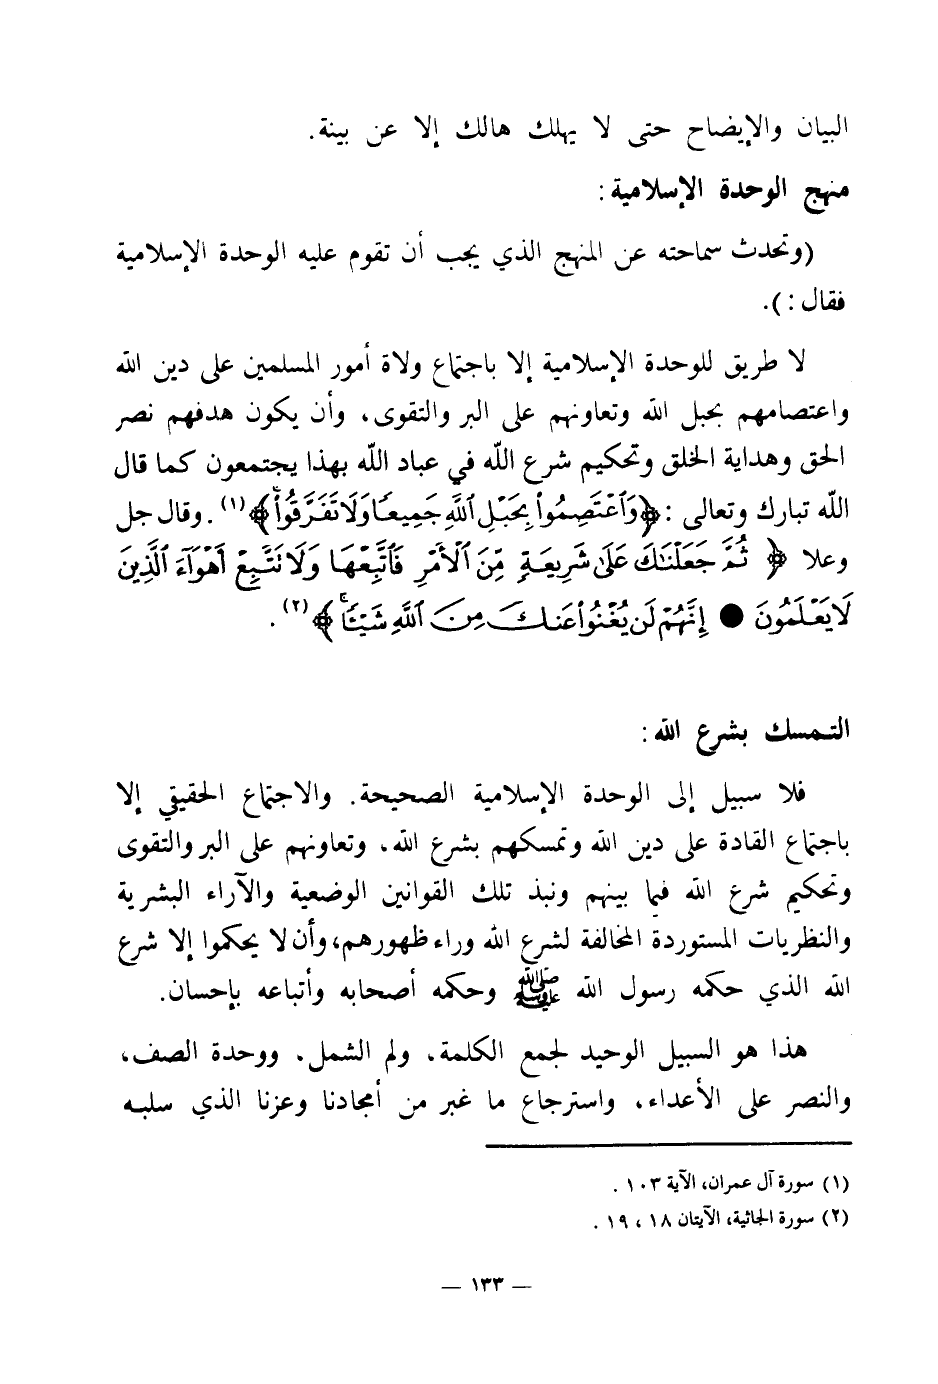 البيان والإيضاح حتى لا يهلك هالك إلا عن بينة.
منهج الوحدة الإسلامية :
(وتحدث سماحته عن المنهج الذي يجب أن تقوم عليه الوحدة الإسلامية
فقال : ).
لا طريق للوحدة الإسلامية إلا باجتماع ولاة أمور المسلمين على دين الله
واعتصامهم بحبل الله وتعاونهم على البر والتقوى، وأن يكون هدفهم نصر
الحق وهداية الخلق وتحكيم شرع الله في عباد الله بهذا يجتمعون كما قال
الله تبارك وتعالى : ﴿وَٱعْتَصِمُوا۟ بِحَبْلِ ٱللَّهِ جَمِيعًا وَلَا تَفَرَّقُوا۟ۚ﴾ (١) . وقال جل
وعلا ﴿ ثُمَّ جَعَلْنَٰكَ عَلَىٰ شَرِيعَةٍ مِّنَ ٱلْأَمْرِ فَٱتَّبِعْهَا وَلَا تَتَّبِعْ أَهْوَآءَ ٱلَّذِينَ
لَا يَعْلَمُونَ ● إِنَّهُمْ لَن يُغْنُوا۟ عَنكَ مِنَ ٱللَّهِ شَيْـًٔاۚ﴾ (٢) .
التمسك بشرع الله :
فلا سبيل إلى الوحدة الإسلامية الصحيحة. والاجتماع الحقيقي إلا
باجتماع القادة على دين الله وتمسكهم بشرع الله، وتعاونهم على البر والتقوى
وتحكيم شرع الله فيما بينهم ونبذ تلك القوانين الوضعية والآراء البشرية
والنظريات المستوردة المخالفة لشرع الله وراء ظهورهم، وأن لا يحكموا إلا شرع
الله الذي حكمه رسول الله ﷺ وحكمه أصحابه وأتباعه بإحسان.
هذا هو السبيل الوحيد لجمع الكلمة، ولم الشمل، ووحدة الصف،
والنصر على الأعداء، واسترجاع ما غبر من أمجادنا وعزنا الذي سلبه
(١) سورة آل عمران، الآية ١٠٣ .
(٢) سورة الجاثية، الآيتان ١٨ ، ١٩ .
— ١٣٣ —